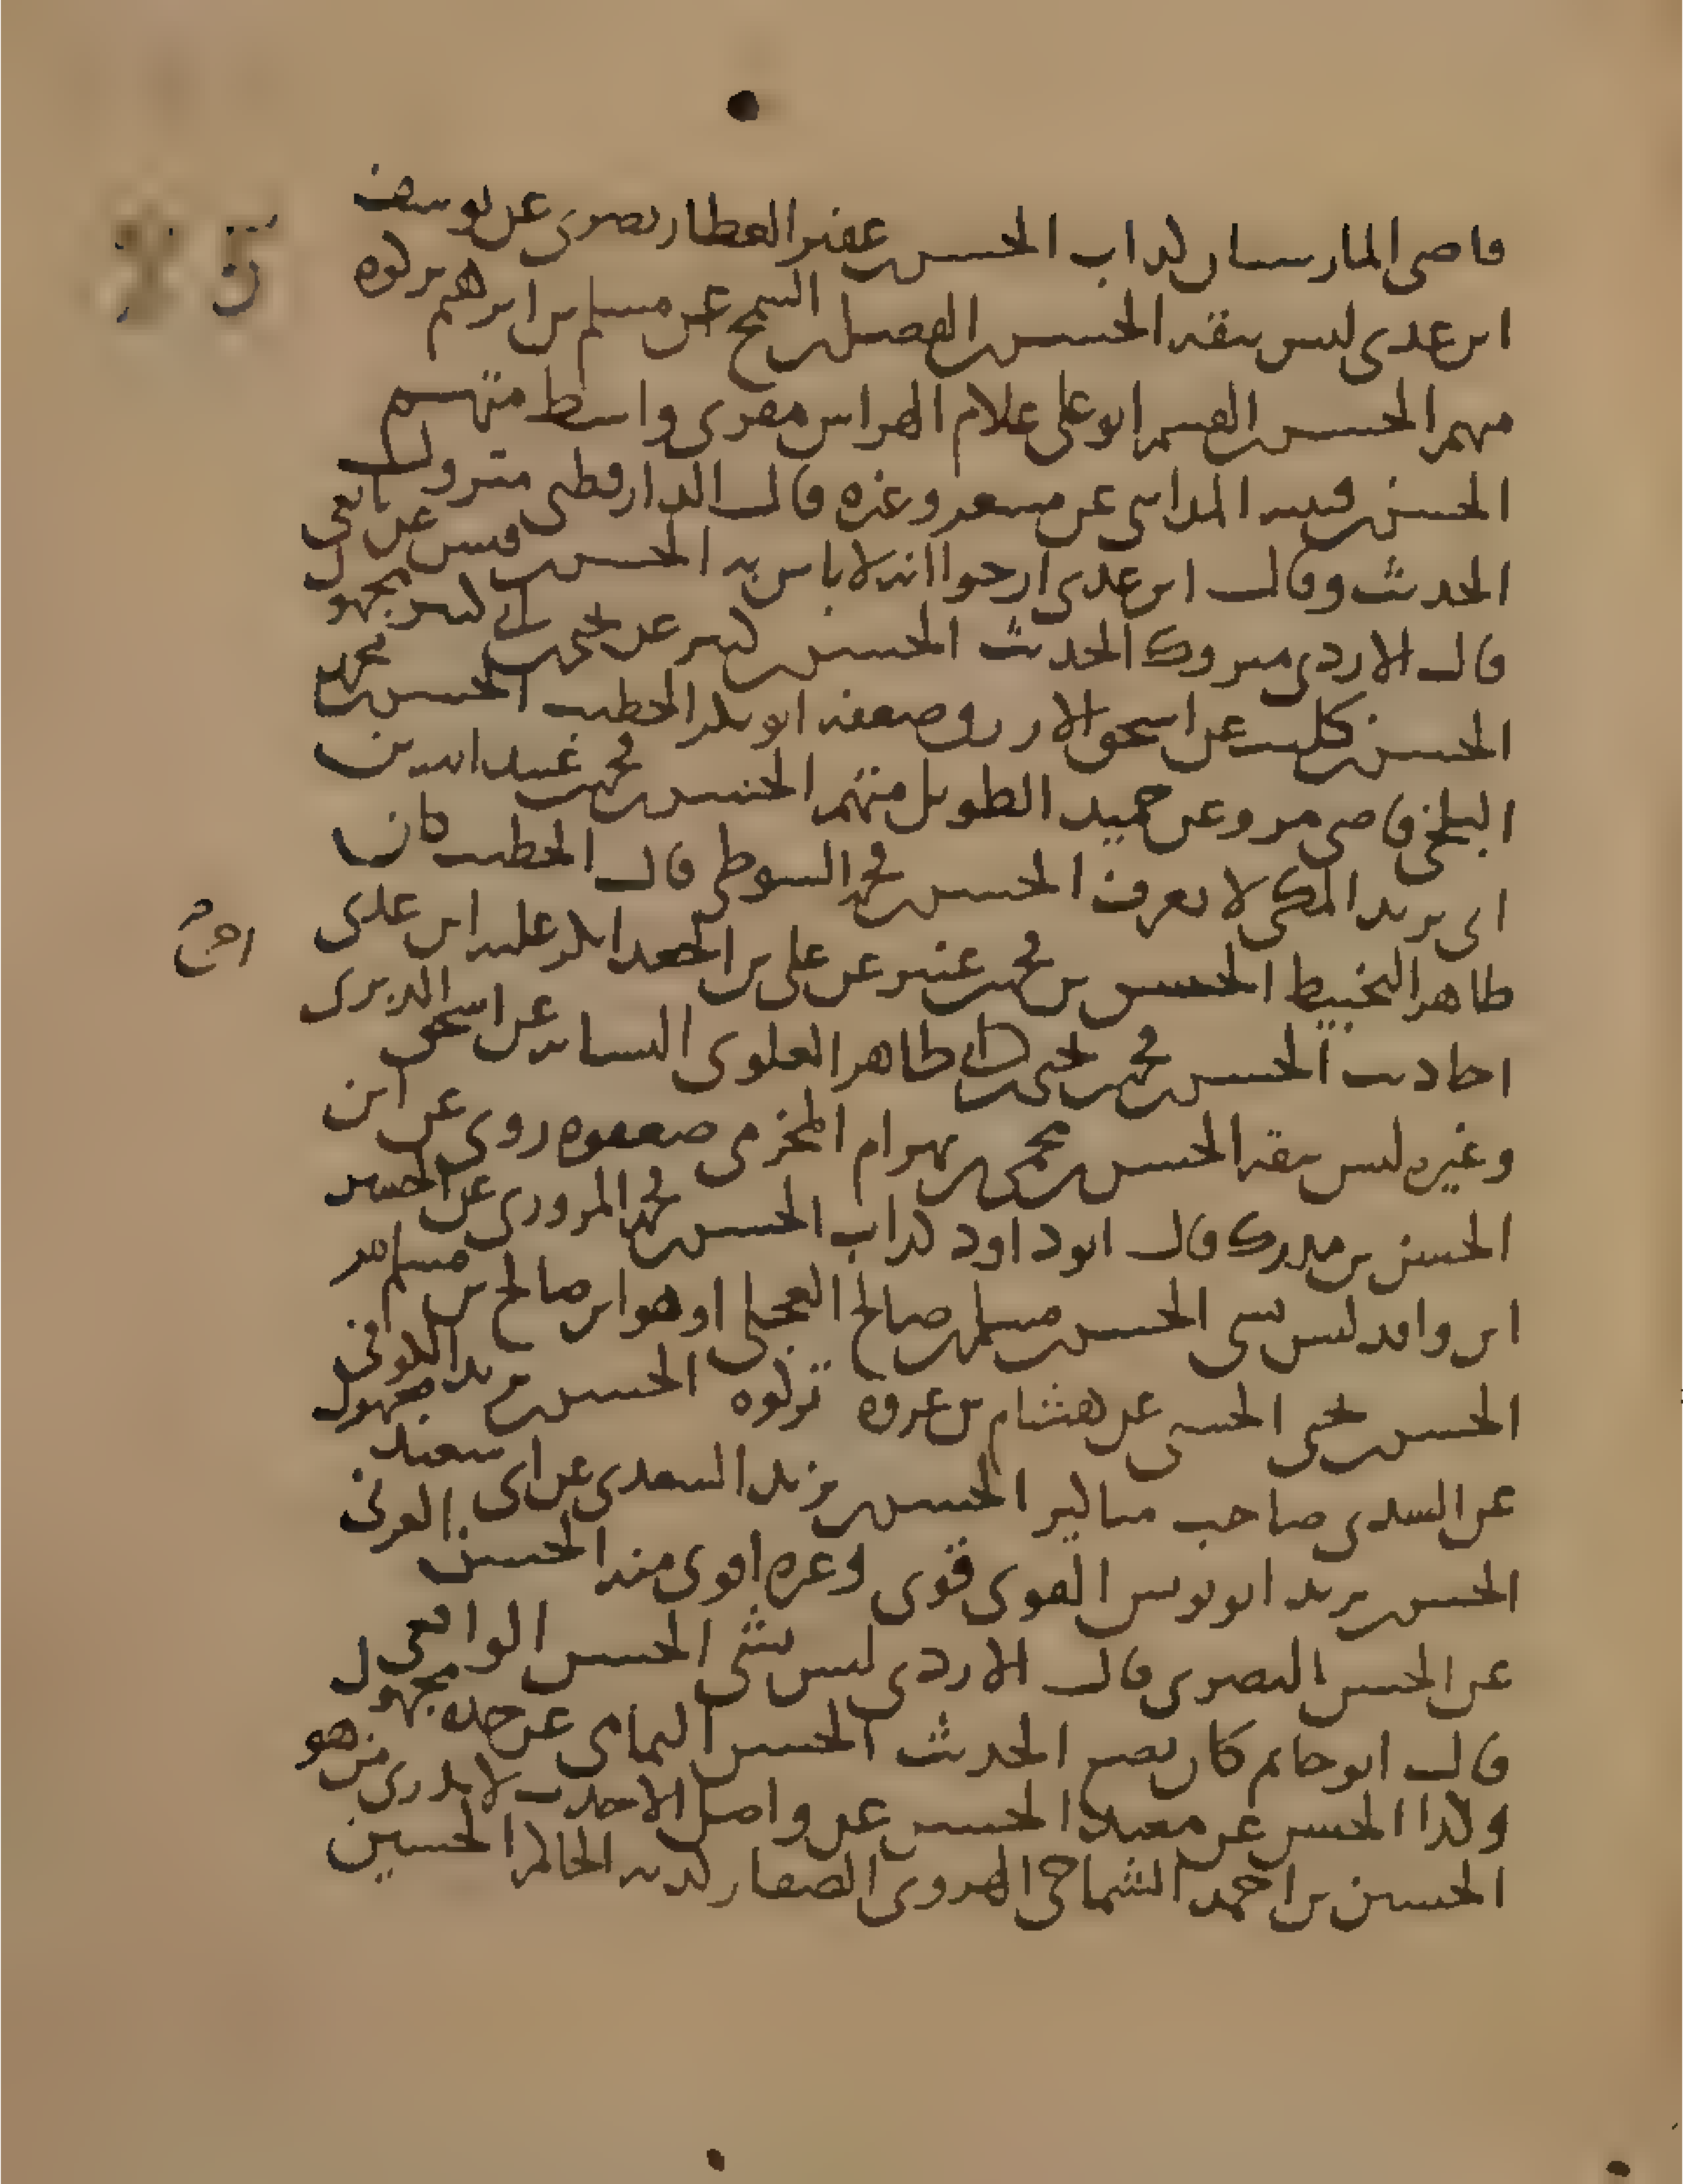 قاضي المارستان كذاب الحسن بن عفير العطار بصري عن يوسف
ابن عدي ليس بثقة الحسن بن الفضل بن السمح عن مسلم بن ابرهيم تركوه
متهم الحسن بن القسم ابو علي غلام الهراس مقرى واسط متهم
الحسن بن قتيبة المدايني عن مسعر وغيره قال الدارقطني متروك
الحديث وقال ابن عدي ارجوا انه لا باس به الحسن بن قيس عن تابعي
قال الازدي متروك الحديث الحسن بن كثير عن يحيى بن ابي كثير مجهول
الحسن بن كليب عن اسحق الازرق وضعفه ابو بكر الخطيب الحسن بن محمد
البلخي قاضي مرو عن حميد الطويل متهم الحسن بن محمد بن عبيد الله بن
ابي يزيد المكي لا يعرف الحسن بن محمد السوطي قال الخطيب كان
ظاهر التخبيط الحسن بن محمد بن عنبر عن علي بن الجعد انكر عليه ابن عدي
احاديث الحسن بن محمد بن يحيى بن ابي طاهر العلوي النسابة عن اسحق الدبري
وغيره ليس بثقة الحسن بن بهرام المخزمي ضعفوه روى عن ابن
الحسن بن مدرك قال ابو داود كذاب الحسن بن محمد المروزي عن الحسين
ابن واقد ليس بشي الحسن بن مسلم بن صالح العجلي او هو ابن صالح بن مسلم مر
الحسن بن يحيى الخشني عن هشام بن عروة تركوه الحسن بن يزيد الكوفي
عن السدي صاحب مناكير الحسن بن يزيد السعدي عن ابي سعيد مجهول
الحسن بن يزيد ابو يونس القوي قوي وغيره اقوى منه الحسن العرني
عن الحسن البصري قال الازدي ليس بشي الحسن الواقعي
قال ابو حاتم كان يضع الحديث الحسن اليمامي عن جده مجهول
وكذا الحسن عن معبد الحسن عن واصل الاحدب لا يدرى من هو
الحسن بن احمد الشماخي الهروي الصفار كذبه الحاكم الحسين